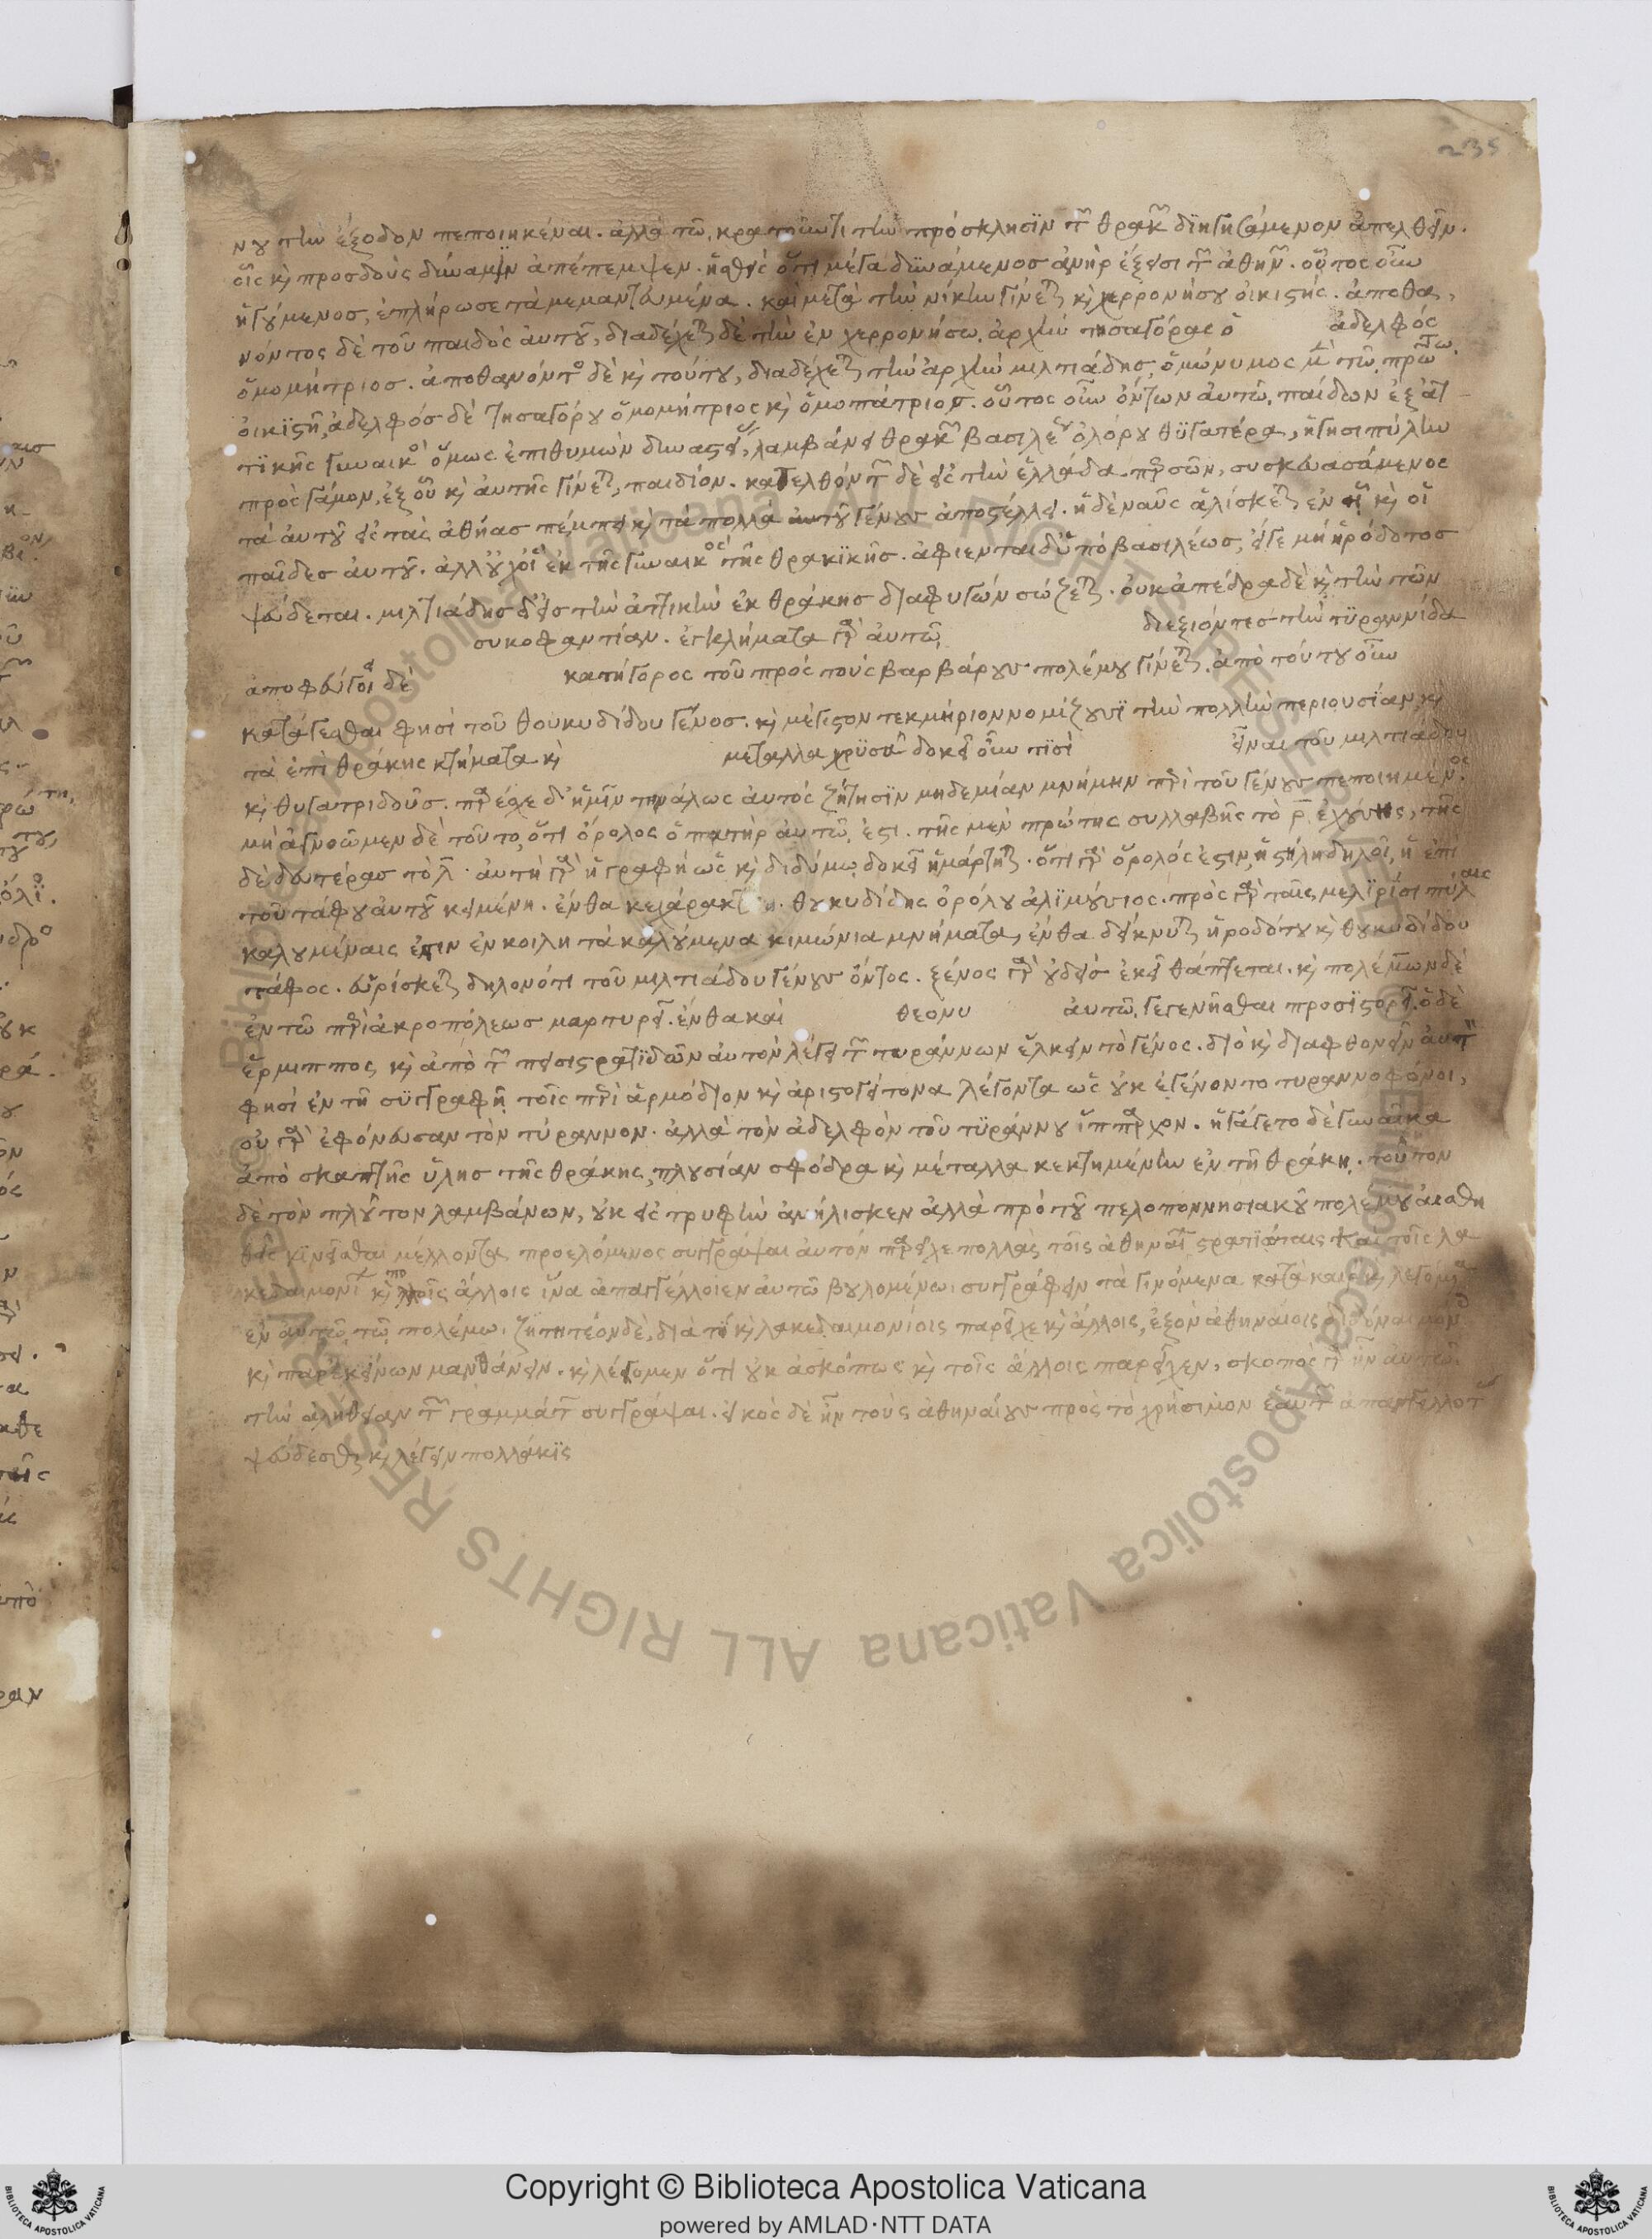 235
νου τὴν ἔξοδον πεποιηκέναι. ἀλλὰ τῶ κρατοῦντι τὴν πρόσκλησϊν τῶν θρακῶν διηγησάμενον ἀπελθεῖν.
οἷς καὶ προσδοὺς δύναμϊν ἀπέπεμψεν. ἡσθεὶς ὅτι μέγα δϋνάμενος ἀνὴρ ἔξεισι τῶν ἀθηνῶν. οὗτος οὖν
ἡγούμενος, ἐπλήρωσε τὰ μεμαντευμένα. καὶ μετὰ τὴν νίκην γίνεται καὶ χερρονήσου οἰκιστής. ἀποθα,
νόντος δὲ τοῦ παιδὸς αὐτοῦ, διαδέχεται δὲ τὴν ἐν χερρονήσω ἀρχὴν τησαγόρας ὁ ἀδελφός
ὁμομήτριος. ἀποθανόντος δὲ καὶ τούτου, διαδέχεται τὴν ἀρχὴν μιλτιάδης, ὁμώνυμος μὲν τῶ πρώτω
οἰκϊστῆ, ἀδελφός δὲ τησαγόρου ὁμομήτριος καὶ ὁμοπάτριος. οὗτος οὖν ὄντων αὐτῶ παίδων ἐξ ἀτ
τϊκῆς γυναικὸς ὅμως ἐπιθυμῶν δυναστείας, λαμβάνει θρακῶν βασιλέως ὀλόρου θϋγατέρα, ἡγησιπύλην
πρὸς γάμον, ἐξ οὗ καὶ αὐτῆς γίνεται, παιδίον. κατελθόντων δὲ εἰς τὴν ἑλλάδα περσῶν, συσκευασάμενος
τὰ αὐτοῦ εἰς τὰς ἀθήας πέμπει καὶ τὰ πολλὰ αὐτοῦ γένους ἀποστέλλει. ἡ δὲ ναῦς ἁλίσκεται ἐν ἧ καὶ οἱ
παῖδες αὐτοῦ. ἀλλ' οὐχ οἱ ἐκ τῆς γυναικὸς τῆς θρακϊκῆς. ἀφίενται δ' ὑπὸ βασιλέως, εἴγε μὴ ἡρόδοτος
ψεύδεται. μιλτιάδης δ' εἰς τὴν ἀττικὴν ἐκ θράκης διαφυγὼν σώζεται. οὐκ ἀπέδρα δὲ καὶ τὴν τῶν
συκοφαντίαν. ἐγκλήματα γὰρ αὐτῶ διεξιόντες τὴν τϋραννίδα
ἀποφεύγει δὲ κατήγορος τοῦ πρὸς τοὺς βαρβάρους πολέμου γίνεται. ἀπὸ τούτου οὖν
κατάγεσθαι φησὶ τοῦ θουκυδίδου γένος. καὶ μέγιστον τεκμήριον νομίζουσϊ τὴν πολλὴν περιουσίαν καὶ
τὰ ἐπὶ θράκης κτήματα καὶ μέταλλα χρϋσᾶ δοκεῖ οὖν τϊσὶ εἶναι τοῦ μιλτιάδου
καὶ θυγατριδοῦς. παρέσχε δ' ἡμῖν την ἄλως αὐτὸς ζήτησϊν μηδεμίαν μνήμην περὶ τοῦ γένους πεποιημένος.
μὴ ἀγνοῶμεν δὲ τοῦτο, ὅτι ὄρολος ὁ πατὴρ αὐτῶ ἐστι. τῆς μὲν πρώτης συλλαβῆς τὸ ρ ἐχούσης, τῆς
δὲ δευτέρας τὸ λ. αὐτὴ γὰρ ἡ γραφὴ ὡς καὶ διδύμω δοκεῖ ἡμάρτηται. ὅτι γὰρ ὄρολός ἐστιν, ἡ στήλη δηλοῖ, ἡ ἐπὶ
τοῦ τάφου αὐτοῦ κειμένη. ἔνθα κεχάρακται. θουκυδίδης ὀρόλου ἁλϊμούσιος. πρὸς γὰρ ταῖς μελϊτίσι πύλαις
καλουμέναις ἐστιν ἐν κοίλη τὰ καλούμενα κιμώνια μνήματα, ἔνθα δείκνυται ἡροδότου καὶ θουκυδίδου
τάφος. εὑρίσκεται δηλονότι τοῦ μιλτιάδου γένους ὄντος. ξένος γὰρ οὐδεὶς ἐκεῖ θάπτεται. καὶ πολέμων δὲ
ἐν τῶ περὶ ἀκροπόλεως μαρτυρεῖ. ἔνθα καὶ θεονυ αὐτῶ γεγενῆσθαι προσϊστορεῖ. ὁ δὲ
ἕρμιππος καὶ ἀπὸ τῶν πεισιστρατϊδῶν αὐτὸν λέγει τῶν τυράννων ἕλκειν τὸ γένος. διὸ καὶ διαφθονεῖν αὐτὸν
φησὶ ἐν τῆ συϊγγραφῆ τοῖς περὶ ἁρμόδιον καὶ ἀριστογείτονα λέγοντα ὡς οὐκ ἐγένοντο τυραννοφόνοι,
οὐ γὰρ ἐφόνευσαν τὸν τύραννον. ἀλλὰ τὸν ἀδελφὸν τοῦ τϋράννου ἵππαρχον. ἠγάγετο δὲ γυναῖκα
ἀπὸ σκαπτῆς ὕλης τῆς θράκης, πλουσίαν σφόδρα καὶ μέταλλα κεκτημένην ἐν τῆ θράκη. τοῦτον
δὲ τὸν πλοῦτον λαμβάνων, οὐκ εἰς τρυφὴν ἀνήλισκεν ἀλλὰ πρὸ τοῦ πελοποννησιακοῦ πολέμου αἰσθη
θεὶς κϊνεῖσθαι μέλλοντα προελόμενος συγγράψαι αὐτὸν παρεῖχε πολλὰς τοῖς ἀθηναίων στρατιώταις καὶ τοῖς λα
κεδαιμονίων καὶ πολλοῖς ἄλλοις ἵνα ἀπαγγέλλοιεν αὐτῶ βουλομένω συγγράφειν τὰ γινόμενα κατὰ καιρὸν καὶ λεγόμενα
ἐν αὐτῶ τῶ πολέμω. ζητητέον δὲ, διὰ τί καὶ λακεδαιμονίοις παρεῖχε καὶ ἄλλοις, ἐξὸν ἀθηναίοις διδόναι μόνοις
καὶ παρ' ἐκείνων μανθάνειν. καὶ λέγομεν ὅτι οὐκ ἀσκόπως καὶ τοῖς ἄλλοις παρεῖχεν, σκοπὸς γὰρ ἦν αὐτῶ
τὴν ἀλήθειαν τῶν πραγμάτων συγγράψαι. εἰκὸς δὲ ἦν τοὺς ἀθηναίους πρὸς τὸ χρήσιμον ἑαυτῶν ἀπαγγέλλοντας
ψεύδεσθαι καὶ λέγειν πολλάκϊς
Copyright © Biblioteca Apostolica Vaticana
powered by AMLAD·NTT DATA